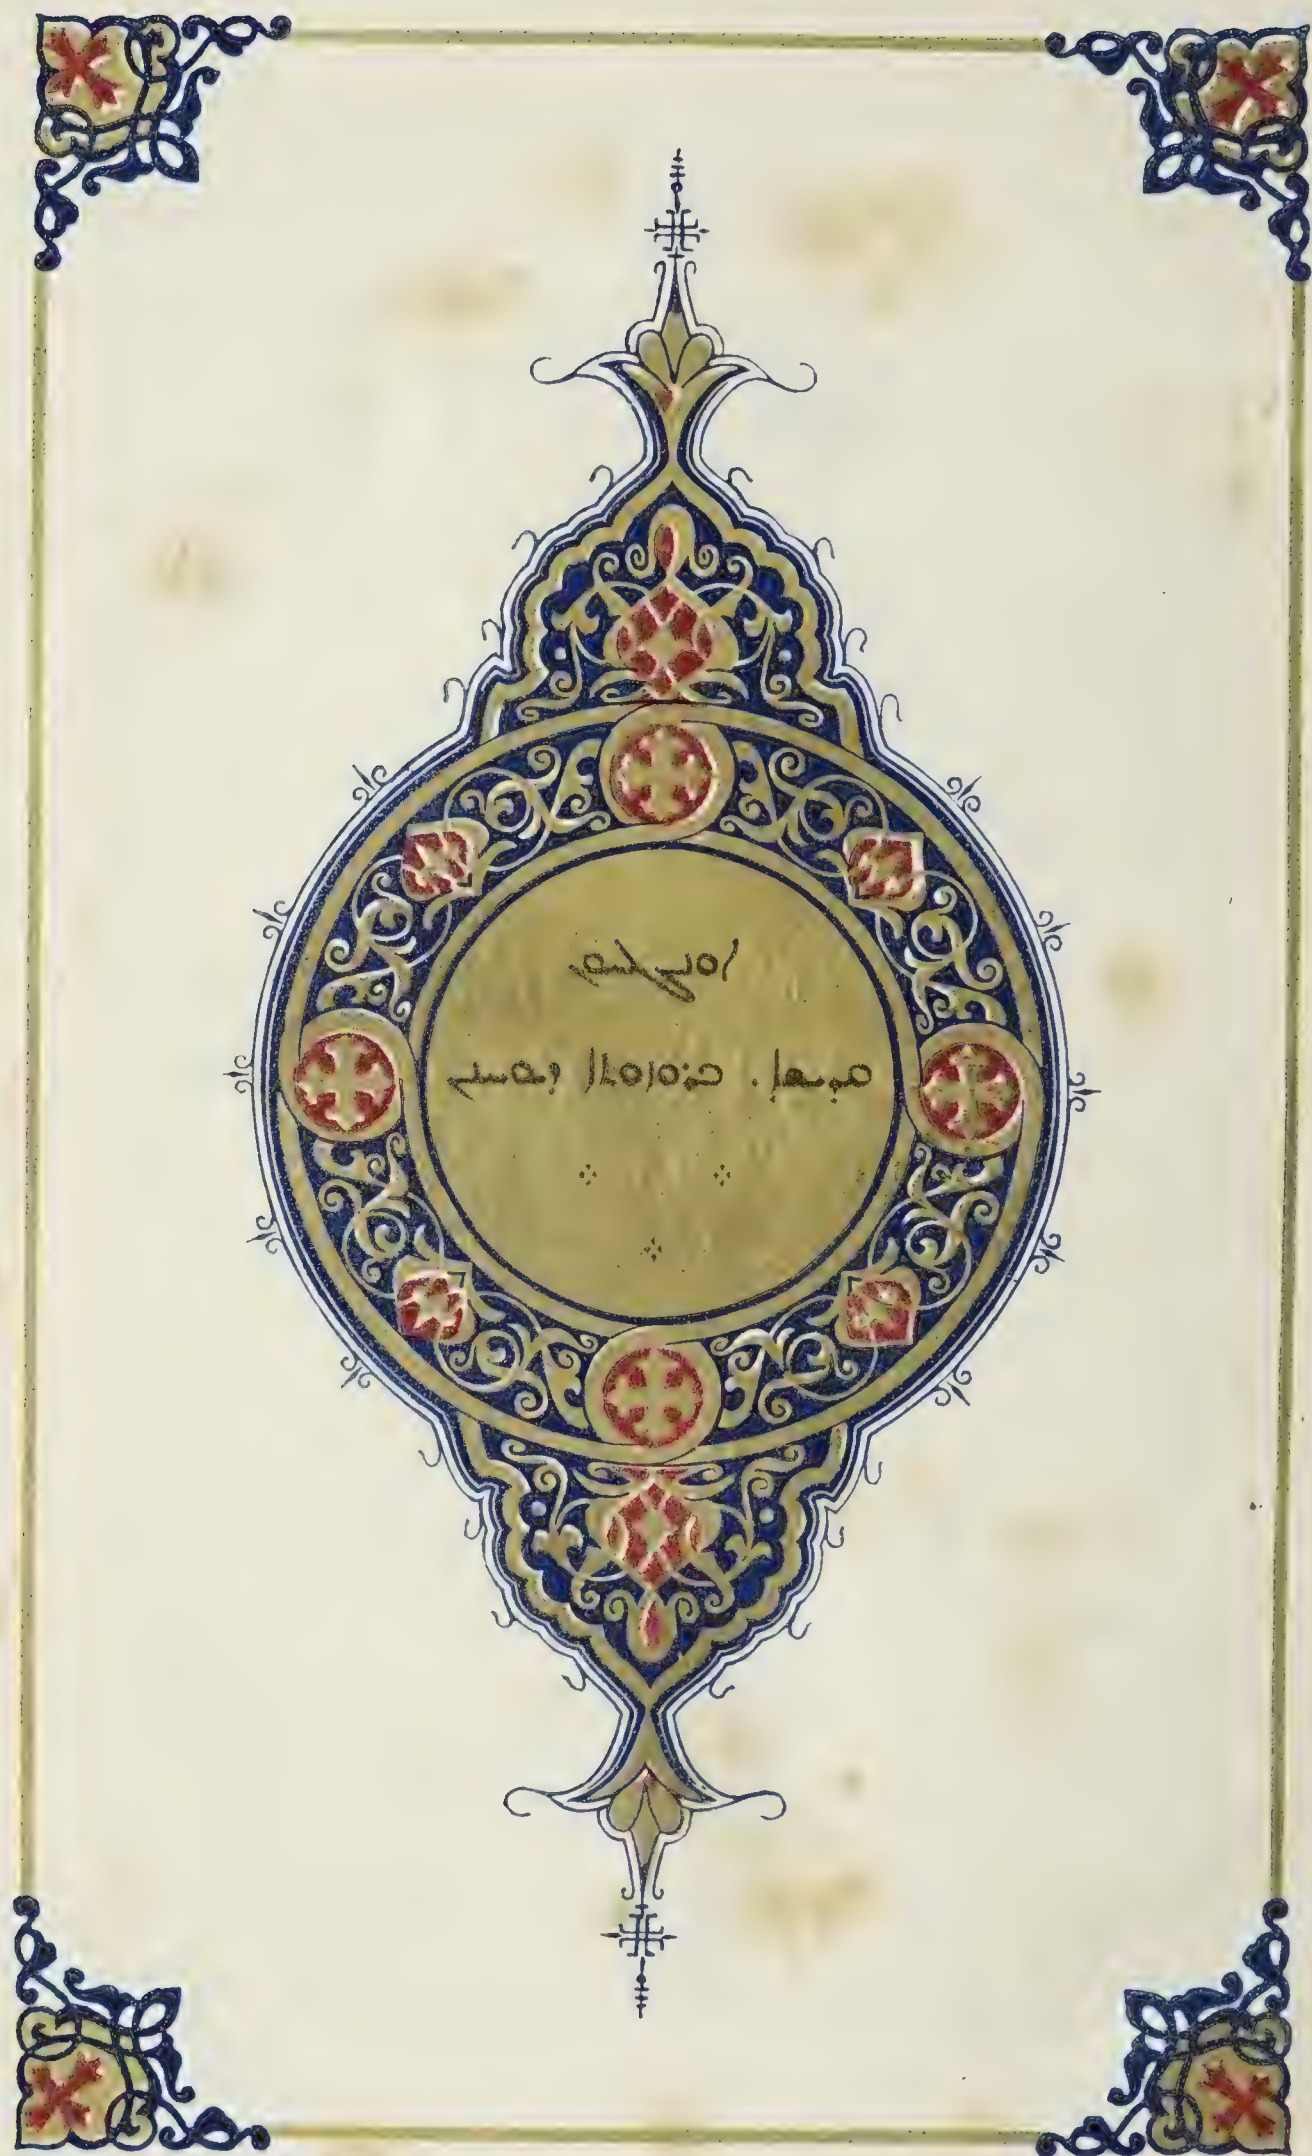 ܐܘܢܓܠܝܘܢ
ܩܕܝܫܐ. ܟܪܘܙܘܬܐ ܕܝܘܚܢܢ